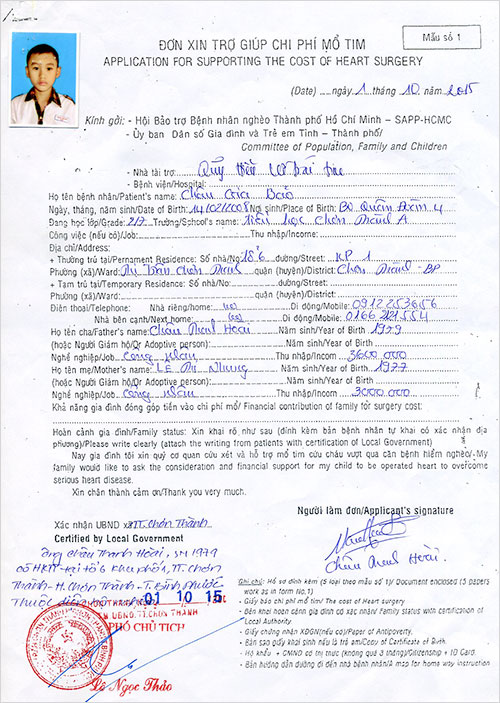 Mẫu số 1
ĐƠN XIN TRỢ GIÚP CHI PHÍ MỔ TIM
APPLICATION FOR SUPPORTING THE COST OF HEART SURGERY
(Date) .....ngày 1 tháng 10 năm 2015
Kính gởi: - Hội Bảo trợ Bệnh nhân nghèo Thành phố Hồ Chí Minh – SAPP-HCMC
- Ủy ban Dân số Gia đình và Trẻ em Tỉnh – Thành phố/
Committee of Population, Family and Children
- Nhà tài trợ: Quỹ
- Bệnh viện/Hospital:
Họ tên bệnh nhân/Patient's name: Châu Gia Bảo
Ngày, tháng, năm sinh/Date of Birth: 14/02/2008 Nơi sinh/Place of Birth: BV Quân Đoàn 4
Đang học lớp/Grade: 2/7 Trường/School's name: Tiểu học Chơn Thành A
Công việc (nếu có)/Job: Thu nhập/Income:
Địa chỉ/Address:
+ Thường trú tại/Permanent Residence: Số nhà/No: đường/Street: KP 1
Phường (xã)/Ward: Thị Trấn Chơn Thành quận (huyện)/District: Chơn Thành - BP
+ Tạm trú tại/Temporary Residence: Số nhà/No: đường/Street:
Phường (xã)/Ward: quận (huyện)/District:
Điện thoại/Telephone: Nhà riêng/home: Di động/Mobile: 0912253656
Nhà bên cạnh/Next home: Di động/Mobile: 0166
Họ tên cha/Father's name: Châu Thanh Hoài Năm sinh/Year of Birth 1979
(hoặc Người Giám hộ/Or Adoptive person): Năm sinh/Year of Birth
Nghề nghiệp/Job: Công nhân Thu nhập/Incom 3600 000
Họ tên mẹ/Mother's name: LÊ Thị Nhung Năm sinh/Year of Birth 1977
(hoặc Người Giám hộ/Or Adoptive person): Năm sinh/Year of Birth
Nghề nghiệp/Job Công nhân Thu nhập/Incom 3000 000
Khả năng gia đình đóng góp tiền vào chi phí mổ/ Financial contribution of family for surgery cost:
Hoàn cảnh gia đình/Family status: Xin khai rõ như sau (đính kèm bản bệnh nhân tự khai có xác nhận địa
phương)/Please write clearly (attach the writing from patients with certification of Local Government)
Nay gia đình tôi xin quý cơ quan cứu xét và hỗ trợ mổ tim cháu vượt qua căn bệnh hiểm nghèo/ My
family would like to ask the consideration and financial support for my child to be operated heart to overcome
serious heart disease.
Xin chân thành cảm ơn/Thank you very much.
Người làm đơn/Applicant's signature
Châu Thanh Hoài
Xác nhận UBND xã TT. Chơn Thành
Certified by Local Government
ông Châu Thanh Hoài, SN 1979
có HKTT tại tổ 6 khu phố 1, TT. Chơn
Thành - H. Chơn Thành - T. Bình Phước
Thuộc diện
01 10 15
UBND TT. CHƠN THÀNH
PHÓ CHỦ TỊCH
Lê Ngọc Thảo
Ghi chú: Hồ sơ đính kèm (5 loại theo mẫu số 1)/ Document enclosed (5 papers
work as in form No.1)
- Giấy báo chi phí mổ tim/ The cost of Heart surgery
- Bản khai hoàn cảnh gia đình có xác nhận/ Family status with certification of
Local Authority
- Giấy chứng nhận XĐGN(nếu có)/Paper of Antipoverty.
- Bản sao giấy khai sinh nếu là trẻ em/Copy of Certificate of Birth.
- Hộ khẩu + CMND có thị thực (không quá 3 tháng)/Citizenship + ID Card.
- Bản hướng dẫn đường đi đến nhà bệnh nhân/A map for home way instruction